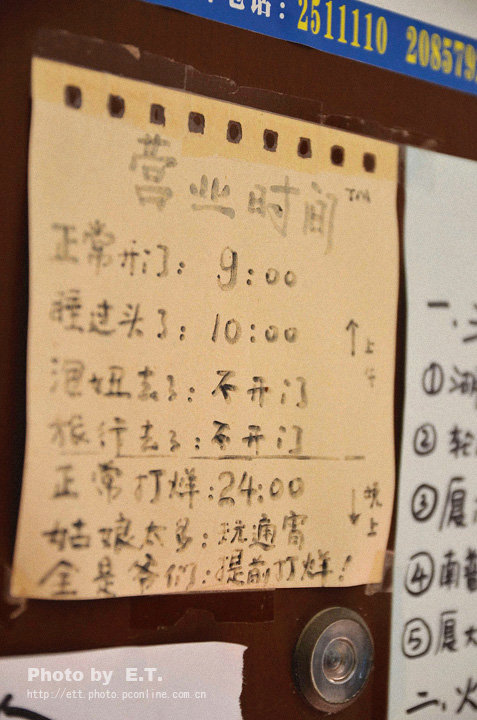 电话：2511110 208579
营业时间
正常开门：9:00
睡过头了：10:00
↑上午
泡妞去了：不开门
旅行去了：不开门
正常打烊：24:00
↓晚上
姑娘太多：玩通宵
全是爷们：提前打烊！
一、
①
② 轮
③ 厦
④ 南普
⑤ 厦大
二、火
Photo by E.T.
http://ett.photo.pconline.com.cn